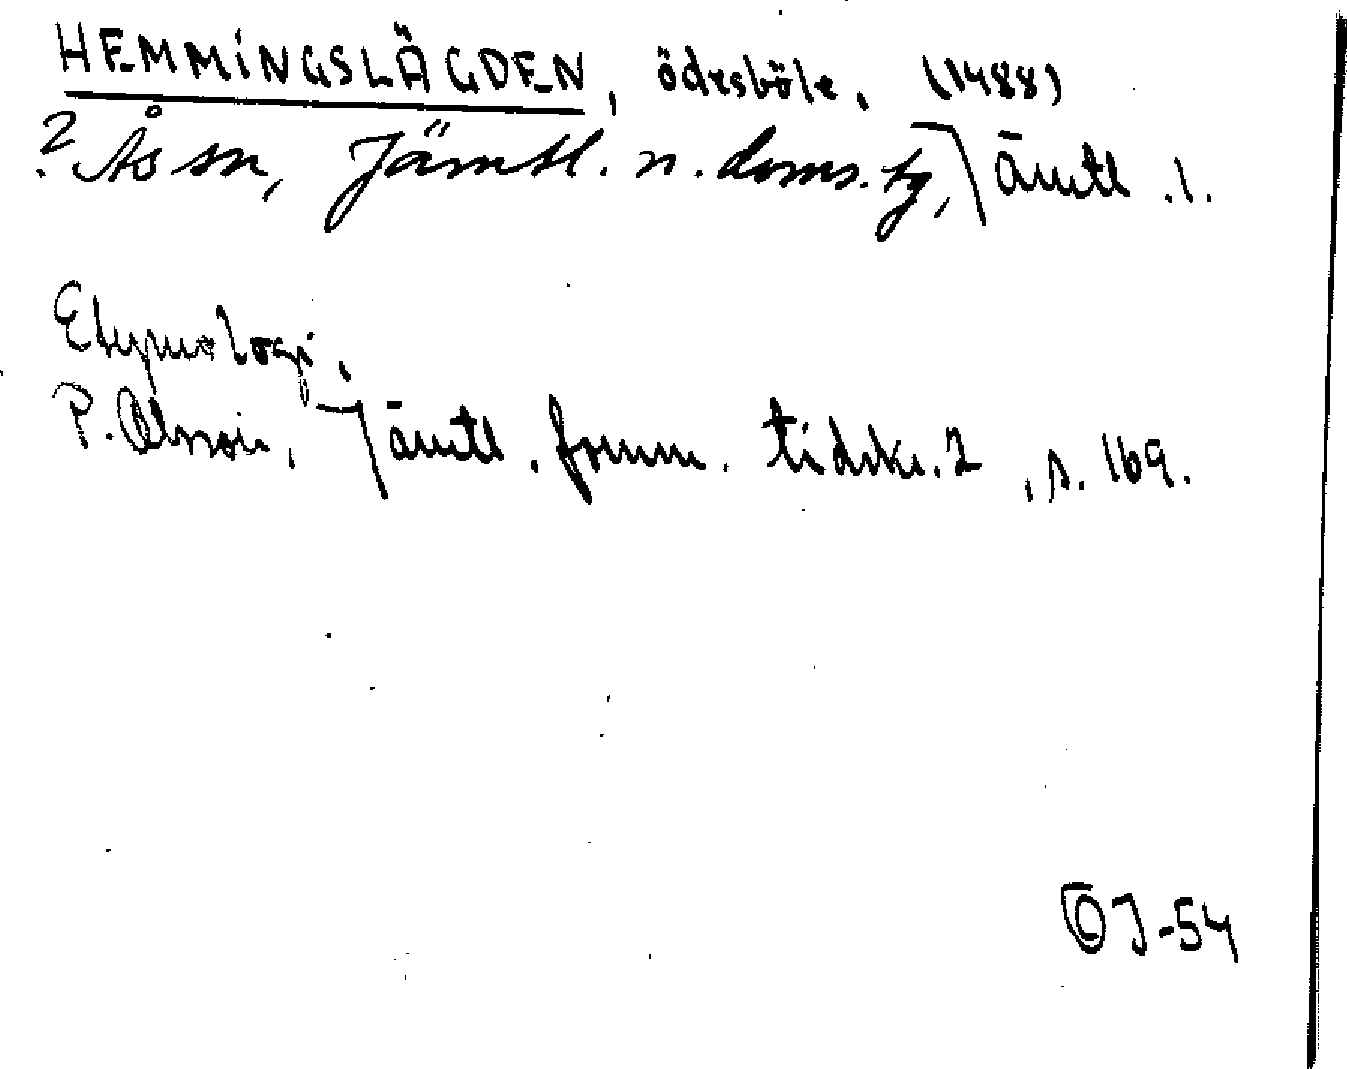 HEMMINGSLÄGDEN, ödesböle. (1488)
? Ås sn, Jämtl. n. doms. tg, Jämtl. l.
Etymologi.
P. Olsson, Jämtl. fornm. tidskr. 2, s. 169.
J-54